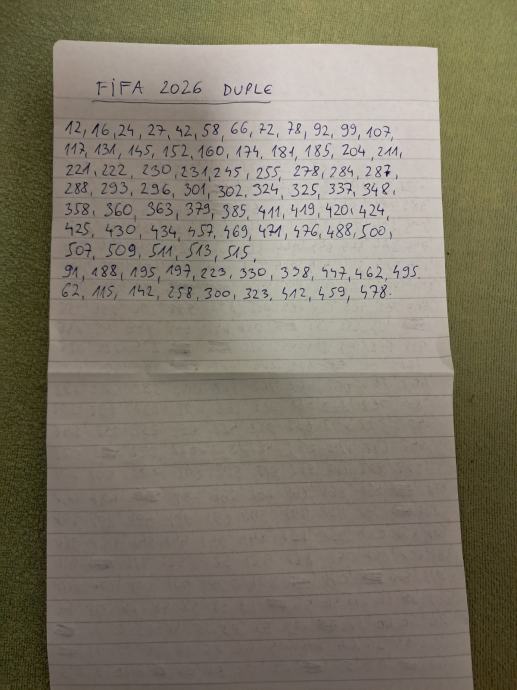 FIFA 2026 DUPLE
12, 16, 24, 27, 42, 58, 66, 72, 78, 92, 99, 107,
117, 131, 145, 152, 160, 174, 181, 185, 204, 211,
221, 222, 230, 231, 245, 255, 278, 284, 287,
288, 293, 296, 301, 302, 324, 325, 337, 348,
358, 360, 363, 379, 385, 411, 419, 420, 424,
425, 430, 434, 457, 469, 471, 476, 488, 500,
507, 509, 511, 513, 515,
91, 188, 195, 197, 223, 330, 338, 447, 462, 495
62, 115, 142, 258, 300, 323, 412, 459, 478.